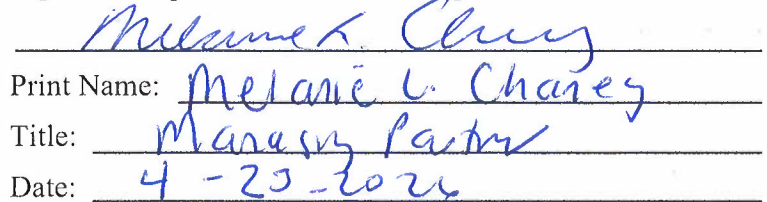 Melanie L. Chaney
Print Name: Melanie L. Chaney
Title: Managing Partner
Date: 4-23-2026